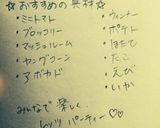 ☆おすすめの具材☆
・ミニトマト
・ブロッコリー
・マッシュルーム
・ヤングコーン
・アボカド
・ウィンナー
・ポテト
・ほたて
・たこ
・えび
・いか
みんなで楽しく
レッツパーティー♡♡